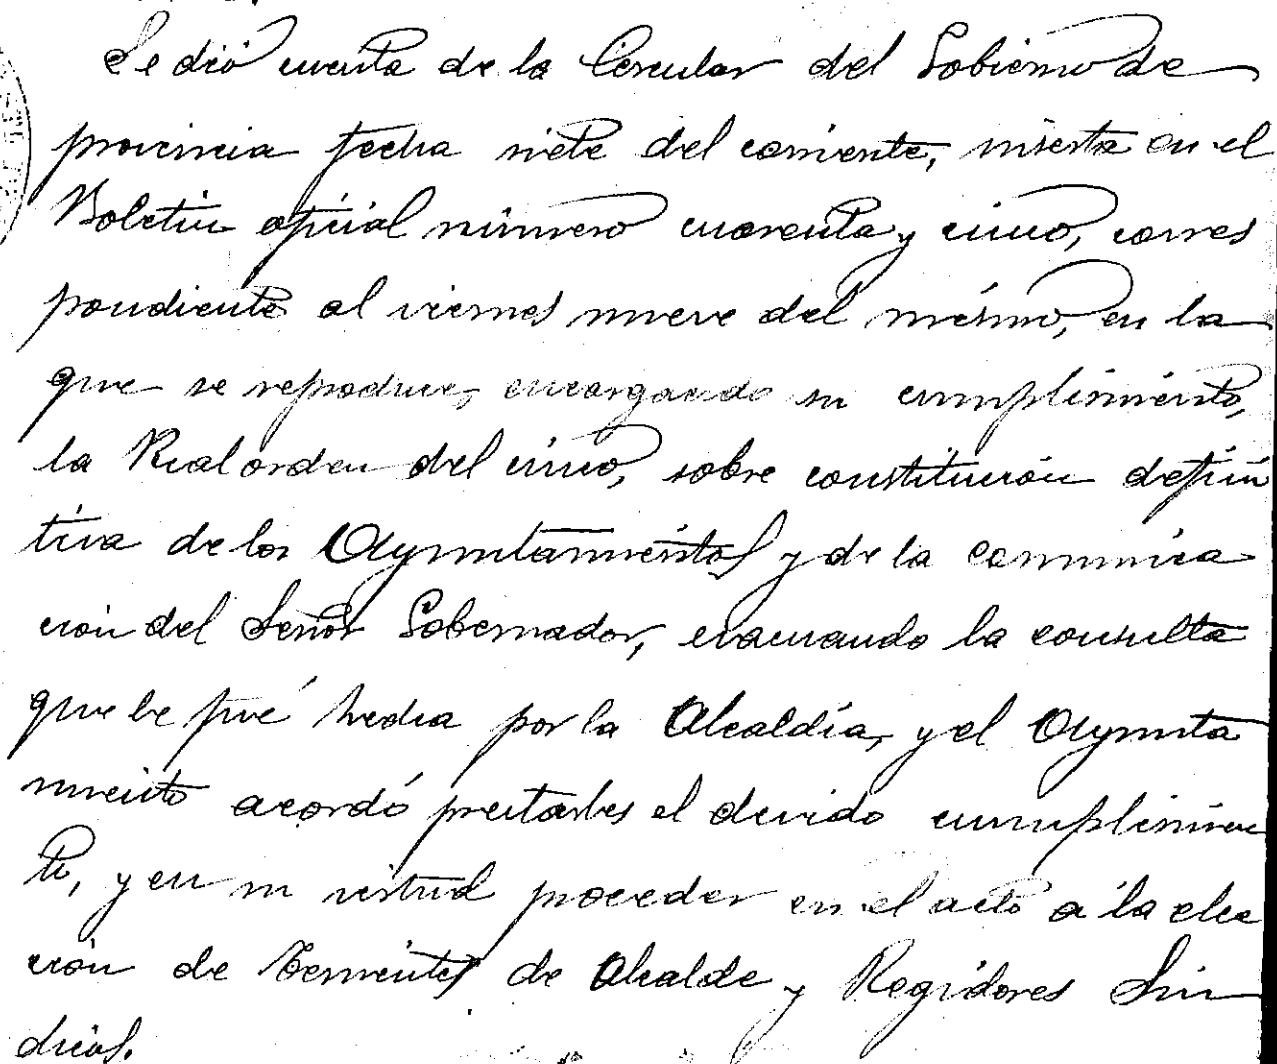 Se dió cuenta de la Circular del Gobierno de
provincia fecha siete del corriente, inserta en el
Boletin oficial número cuarenta y cinco, corres
pondiente al viernes nueve del mismo, en la
que se reproduce, encargando su cumplimiento,
la Real orden del cinco, sobre constitución defini
tiva de los Ayuntamientos y de la comunica
ción del Señor Gobernador, evacuando la consulta
que le fué hecha por la Alcaldía, y el Ayunta
miento acordó prestarles el devido cumplimien
to, y en su virtud proceder en el acto a la elec
ción de Tenientes de Alcalde y Regidores Sín
dicos.